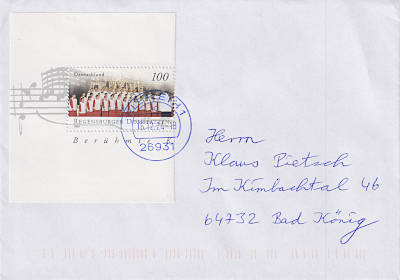 Deutschland
100
REGENSBURGER DOMSPATZEN
Berühm
26931
Herrn
Klaus Pietsch
Im Kimbachtal 46
64732 Bad König